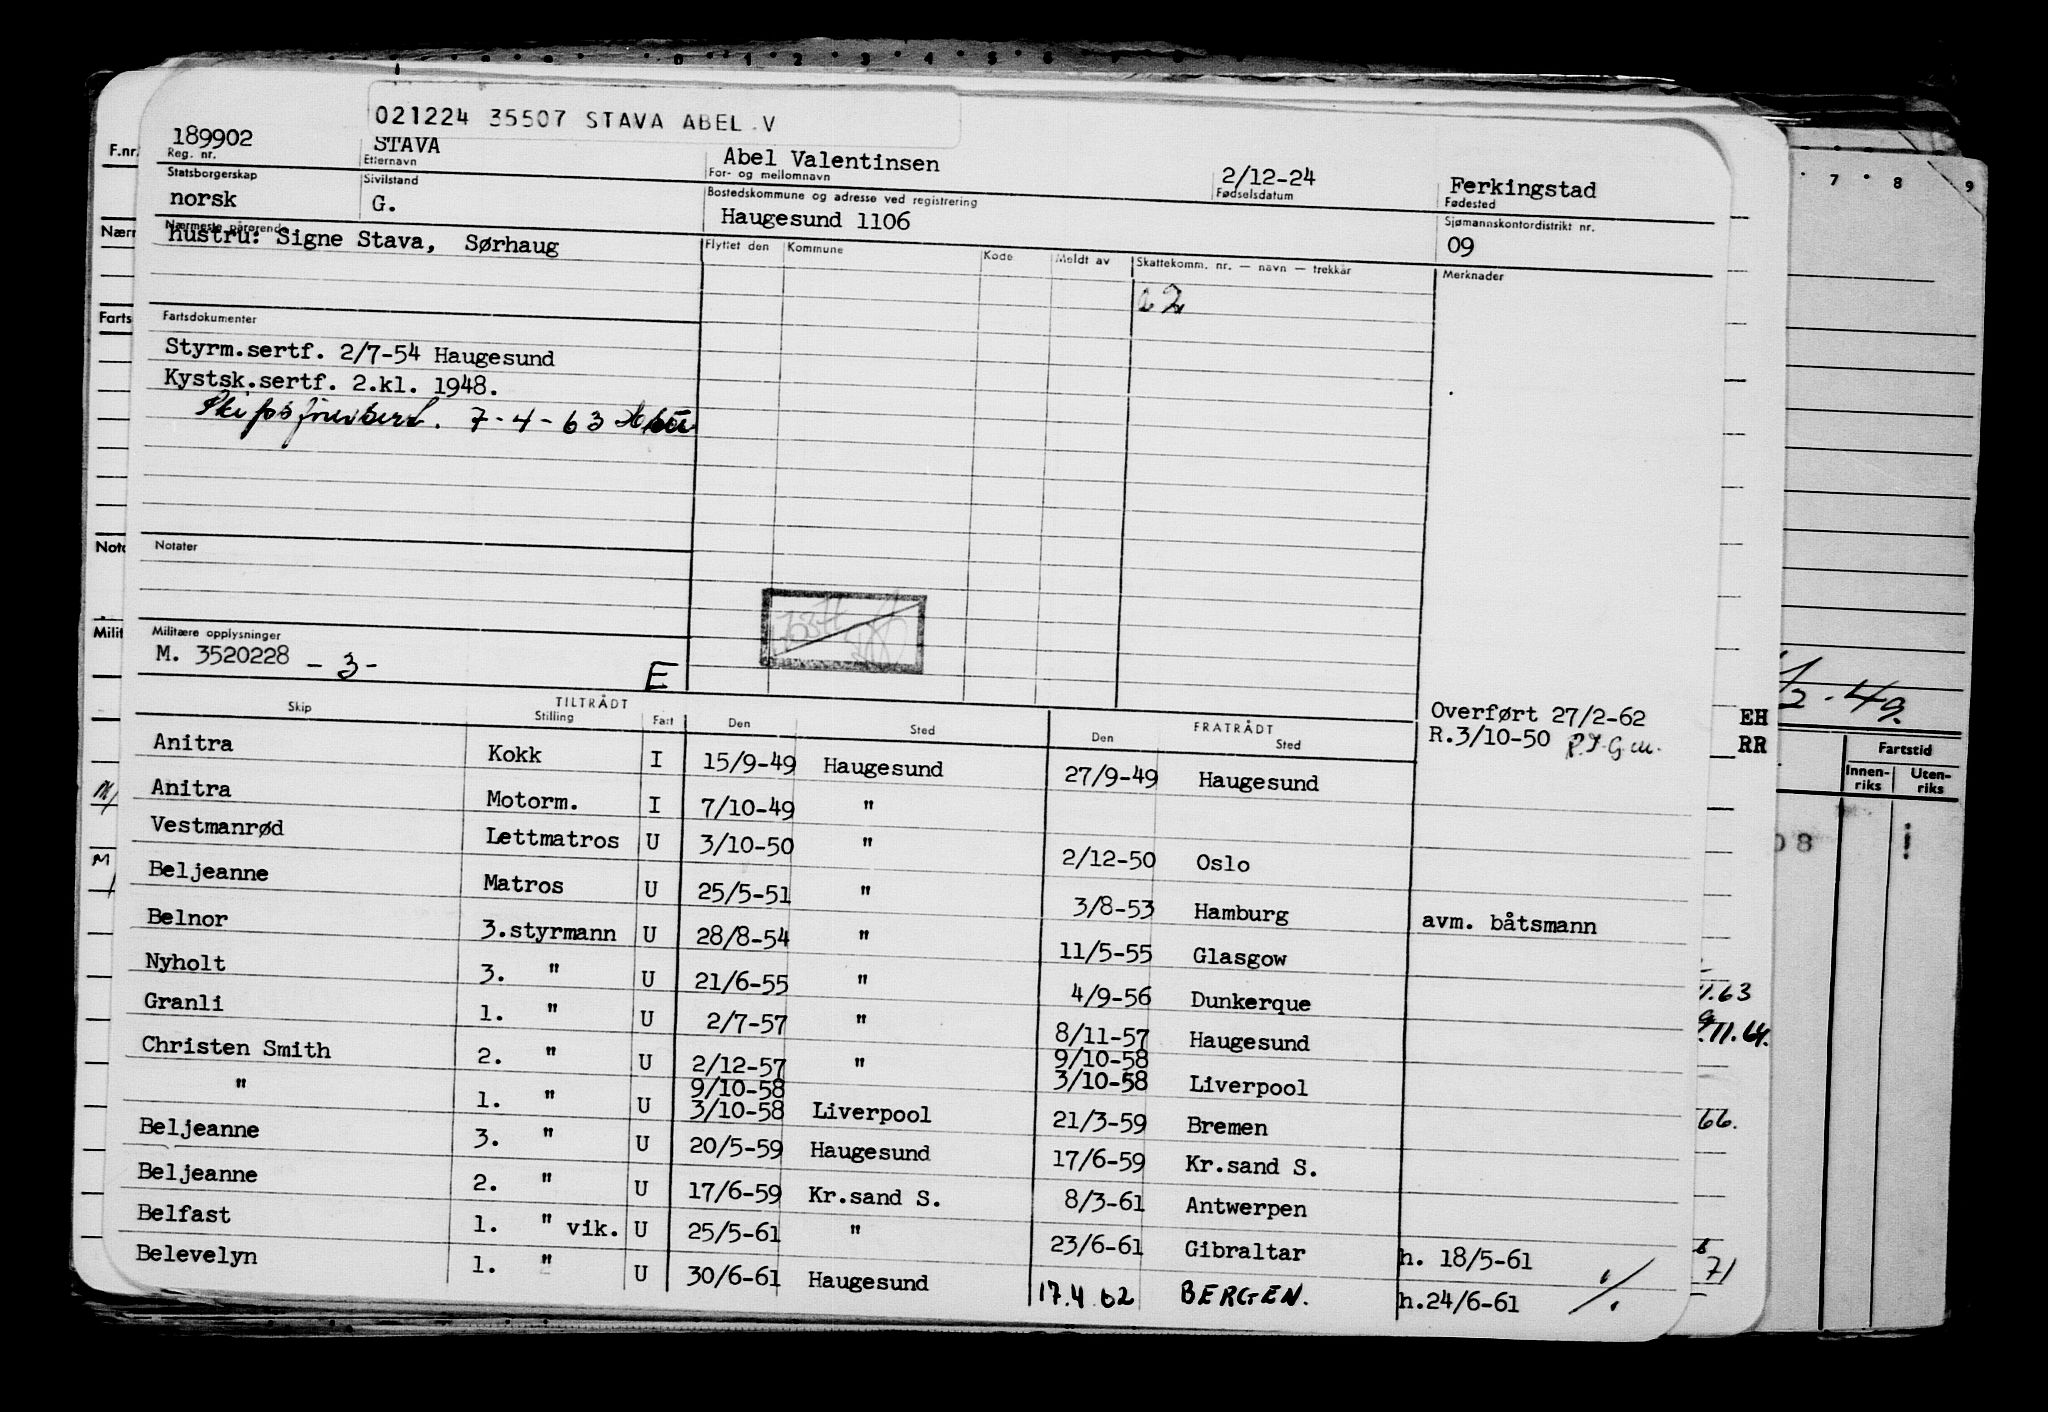 021224 35507 STAVA ABEL V
189902 STAVA Abel Valentinsen 2/12-24 Ferkingstad
Reg. nr. Etternavn For- og mellomnavn Fødselsdatum Fødested
Statsborgerskap Sivilstand Bostedskommune og adresse ved registrering Sjømannskontordistrikt nr.
norsk G. Haugesund 1106 09
Nærmeste pårørende
hustru: Signe Stava, Sørhaug
Flyttet den Kommune Kode Meldt av Skattekomm. nr. — navn — trekkår Merknader
Fartsdokumenter
Styrm.sertf. 2/7-54 Haugesund
Kystsk.sertf. 2.kl. 1948.
7-4-63
Notater
Militære opplysninger
M. 3520228 -3-
E
Overført 27/2-62 EH
R.3/10-50 RR
Skip TILTRÅDT FRATRÅDT
Stilling Fart Den Sted Den Sted
Anitra Kokk I 15/9-49 Haugesund 27/9-49 Haugesund
Anitra Motorm. I 7/10-49 "
Vestmanrød Lettmatros U 3/10-50 " 2/12-50 Oslo
Beljeanne Matros U 25/5-51 " 3/8-53 Hamburg avm. båtsmann
Belnor 3.styrmann U 28/8-54 " 11/5-55 Glasgow
Nyholt 3. " U 21/6-55 " 4/9-56 Dunkerque
Granli 1. " U 2/7-57 " 8/11-57 Haugesund
Christen Smith 2. " U 2/12-57 " 9/10-58 3/10-58 Liverpool
" 1. " U 9/10-58 3/10-58 Liverpool 21/3-59 Bremen
Beljeanne 3. " U 20/5-59 Haugesund 17/6-59 Kr.sand S.
Beljeanne 2. " U 17/6-59 Kr.sand S. 8/3-61 Antwerpen
Belfast 1. " vik. U 25/5-61 " 23/6-61 Gibraltar h. 18/5-61
Belevelyn 1. " U 30/6-61 Haugesund 17.4 62 BERGEN. h.24/6-61
F.nr.
Nærm
Farts
Nota
Milit
Fartstid
Innen-riks Uten-riks